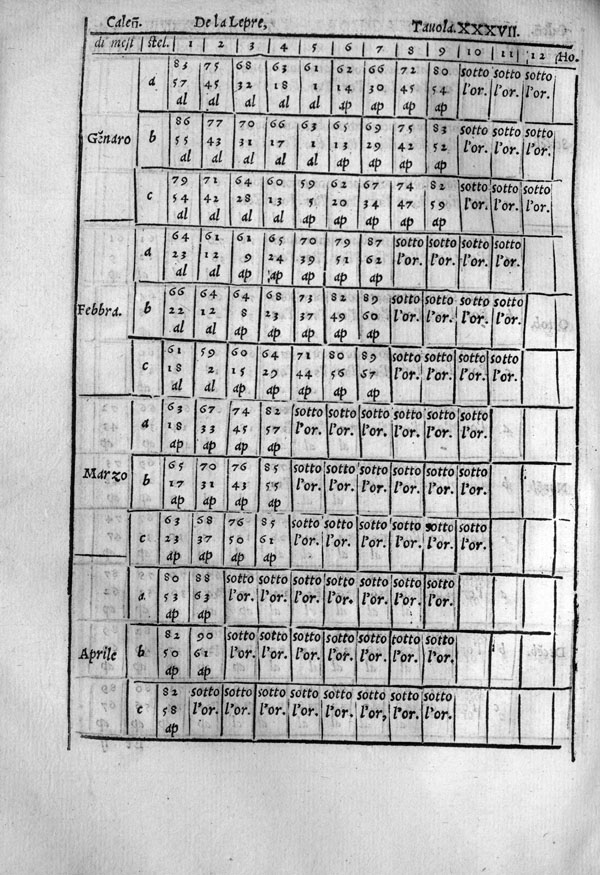 Caleñ. De la Lepre, Tavola. XXXVII.
di mesi stel. 1 2 3 4 5 6 7 8 9 10 11 12 Ho.
83 75 68 63 61 62 66 72 80 sotto sotto sotto
a 57 45 32 18 1 14 30 45 54 l'or. l'or. l'or.
al al al al al ap ap ap ap
86 77 70 66 63 65 69 75 83 sotto sotto sotto
Gēnaro b 55 43 31 17 1 13 29 42 52 l'or. l'or. l'or.
al al al al al ap ap ap ap
79 71 64 60 59 62 67 74 82 sotto sotto sotto
c 54 42 28 13 5 20 34 47 59 l'or. l'or. l'or.
al al al al ap ap ap ap ap
64 61 61 65 70 79 87 sotto sotto sotto sotto
a 23 12 9 24 39 51 62 l'or. l'or. l'or. l'or.
al al ap ap ap ap ap
66 64 64 68 73 82 89 sotto sotto sotto sotto
Febbra. b 22 12 8 23 37 49 60 l'or. l'or. l'or. l'or.
al al ap ap ap ap ap
61 59 60 64 71 80 89 sotto sotto sotto sotto
c 18 2 15 29 44 56 67 l'or. l'or. l'or. l'or.
al al ap ap ap ap ap
63 67 74 82 sotto sotto sotto sotto sotto sotto
a 18 33 45 57 l'or. l'or. l'or. l'or. l'or. l'or.
ap ap ap ap
65 70 76 85 sotto sotto sotto sotto sotto sotto
Marzo b 17 31 43 55 l'or. l'or. l'or. l'or. l'or. l'or.
ap ap ap ap
63 68 76 85 sotto sotto sotto sotto sotto sotto
c 23 37 50 61 l'or. l'or. l'or. l'or. l'or. l'or.
ap ap ap ap
80 88 sotto sotto sotto sotto sotto sotto sotto
a 53 63 l'or. l'or. l'or. l'or. l'or. l'or. l'or.
ap ap
82 90 sotto sotto sotto sotto sotto sotto sotto
Aprile b 50 61 l'or. l'or. l'or. l'or. l'or. l'or. l'or.
ap ap
82 sotto sotto sotto sotto sotto sotto sotto sotto
c 58 l'or. l'or. l'or. l'or. l'or. l'or, l'or. l'or.
ap